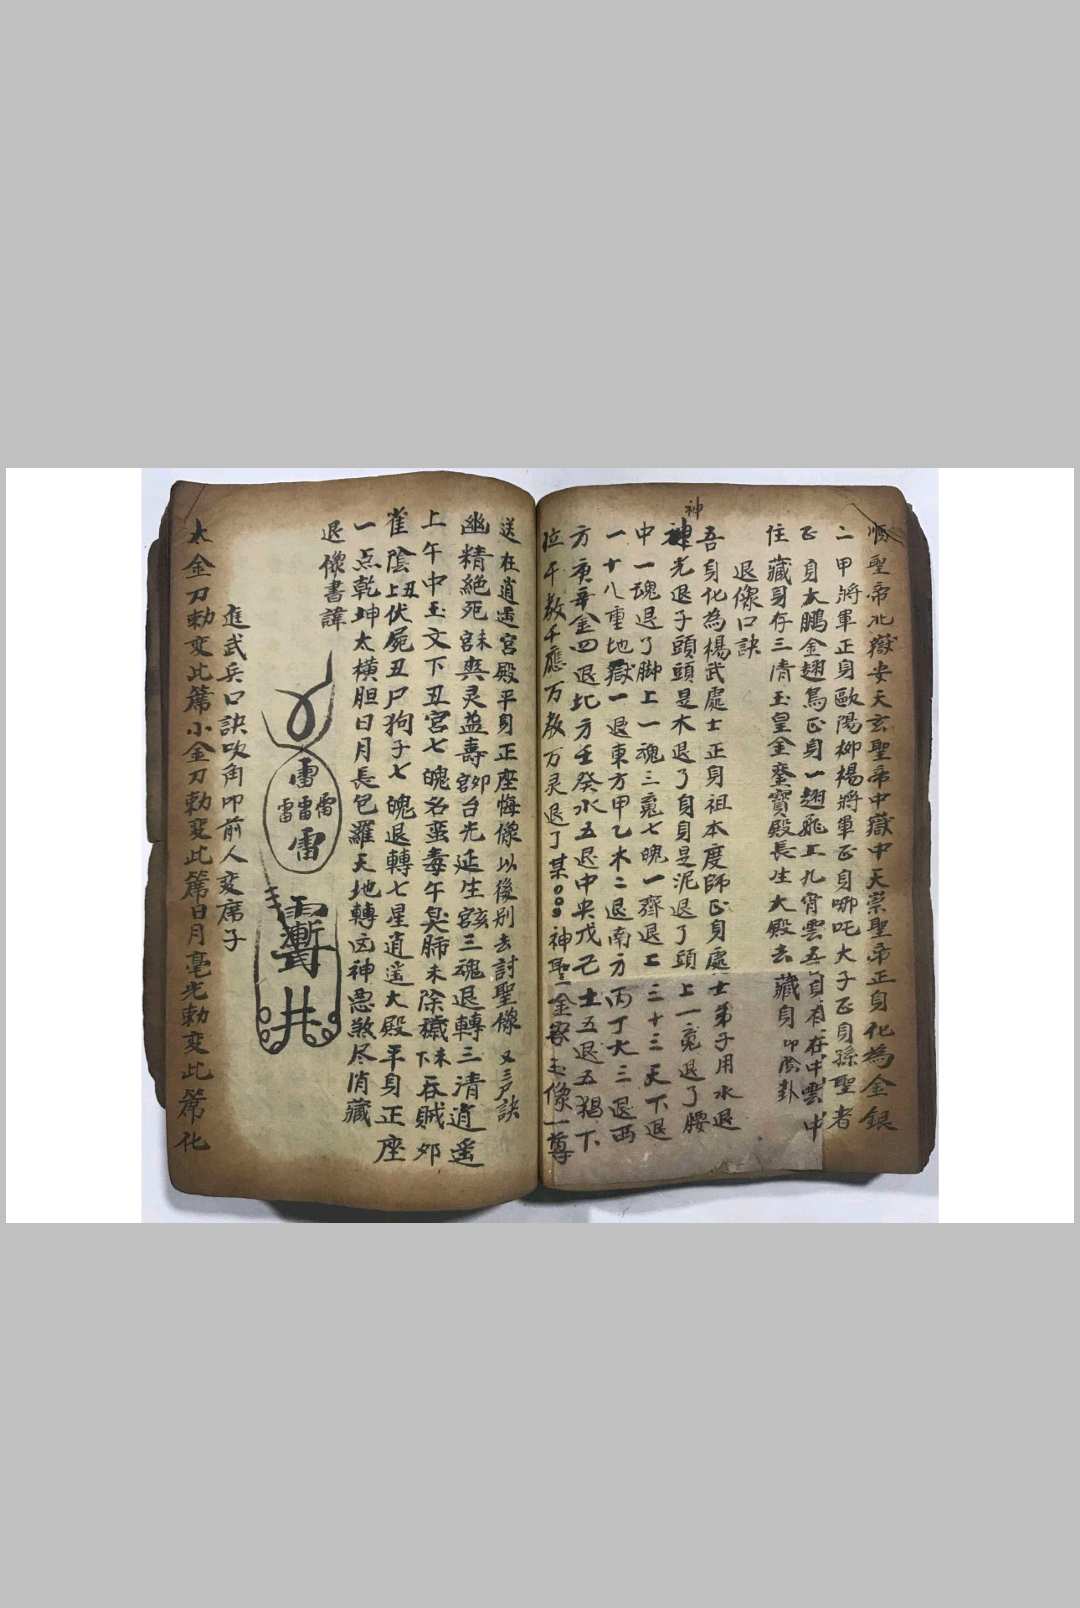 順聖帝北嶽安天玄聖帝中嶽中天崇聖帝正身化為金銀
二甲將軍正身歐陽柳楊將軍正身哪吒大子正身孫聖者
正身大鵬金翅鳥正身一翅飛上九霄雲吾身在中雲中
住藏身存三清玉皇金鑾寶殿長生大殿去藏身
退像口訣
吾身化為楊武處士正身祖本度師正身處士弟子用水退
神
神光退子頭頭是木退了身身是泥退了頭上一魂退了腰
中一魂退了脚上一魂三魂七魄一齊退上三十三天下退
一十八重地獄一退東方甲乙木二退南方丙丁火三退西
方庚辛金四退北方壬癸水五退中央戊己土五退五猖下
位千教千應万教万灵退了某神聖金容玉像一尊
送在逍遥宮殿平身正座悔像以後別去討聖像又三尸訣
幽精絕死宮未爽灵益壽宮卯台光延生宮亥三魂退轉三清逍遥
上午中玉文下丑宮七魄名蛮毒午臭肺未除穢未下吞賊卯
雀陰丑上伏屍丑尸狗子七魄退轉七星逍遥大殿平身正座
一点乾坤大橫胆日月長包羅天地轉凶神惡煞尽消藏
退像書諱
雷
雷雷雷
雷
井
進武兵口訣吹角叩前人变席子
太金刀勅变此席小金刀勅变此席日月毫光勅变此席化